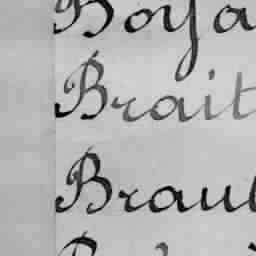 Boya
Brait
Braul